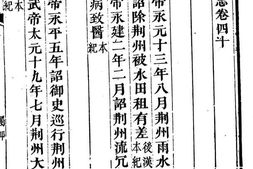 志卷四十
帝永元十三年八月荆州雨水
詔除荆州被水田租有差後漢本紀
帝永建二年二月詔荆州流冗
病致醫本紀
帝永平五年詔御史巡行荆州
本紀
武帝太元十九年七月荆州大